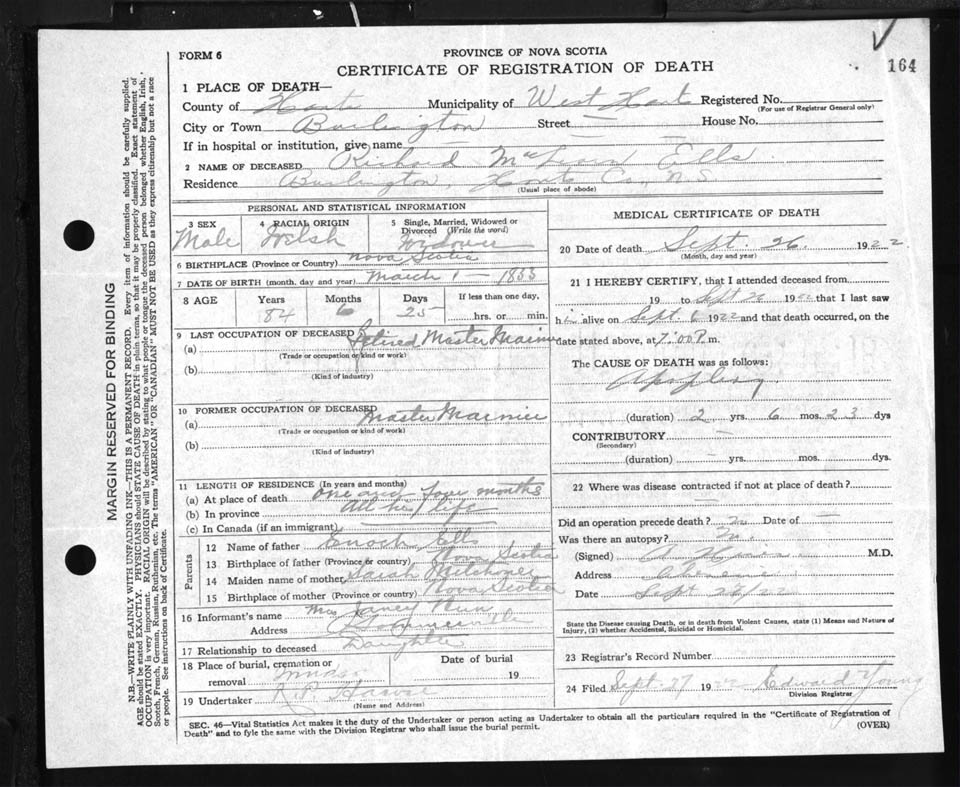 164
FORM 6
PROVINCE OF NOVA SCOTIA
CERTIFICATE OF REGISTRATION OF DEATH
MARGIN RESERVED FOR BINDING
N.B.—WRITE PLAINLY WITH UNFADING INK—THIS IS A PERMANENT RECORD. Every item of information should be carefully supplied.
AGE should be stated EXACTLY. PHYSICIANS should STATE CAUSE OF DEATH in plain terms, so that it may be properly classified. Exact statement of
OCCUPATION is very important. RACIAL ORIGIN will be described by stating to what people or tongue the deceased person belonged whether English, Irish,
Scotch, French, German, Russian, Ruthenian, etc. The terms "AMERICAN" or "CANADIAN" MUST NOT BE USED as they express citizenship but not a race
or people. See instructions on back of Certificate.
1 PLACE OF DEATH—
County of Hants Municipality of West Hants Registered No.
(For use of Registrar General only)
City or Town Burlington Street — House No.
If in hospital or institution, give name —
2 NAME OF DECEASED Richard Ells
Residence Burlington, Hants Co., N.S.
(Usual place of abode)
PERSONAL AND STATISTICAL INFORMATION
3 SEX Male
4 RACIAL ORIGIN Welsh
5 Single, Married, Widowed or Divorced (Write the word) Widower
6 BIRTHPLACE (Province or Country) Nova Scotia
7 DATE OF BIRTH (month, day and year) March 1 — 1833
8 AGE Years 84 Months 6 Days 25 If less than one day, hrs. or min.
9 LAST OCCUPATION OF DECEASED
(a) Retired Master Mariner
(Trade or occupation or kind of work)
(b)
(Kind of industry)
10 FORMER OCCUPATION OF DECEASED
(a) Master Mariner
(Trade or occupation or kind of work)
(b)
(Kind of industry)
11 LENGTH OF RESIDENCE (In years and months)
(a) At place of death one and four months
(b) In province All his life
(c) In Canada (if an immigrant)
Parents
12 Name of father Enoch Ells
13 Birthplace of father (Province or country) Nova Scotia
14 Maiden name of mother Sarah
15 Birthplace of mother (Province or country) Nova Scotia
16 Informant's name Mrs
Address
17 Relationship to deceased Daughter
18 Place of burial, cremation or removal Date of burial 19
19 Undertaker R.P.
(Name and Address)
MEDICAL CERTIFICATE OF DEATH
20 Date of death Sept. 26. 1922
(Month, day and year)
21 I HEREBY CERTIFY, that I attended deceased from
19 to Sept 26 1922 that I last saw
him alive on Sept 6 1922 and that death occurred, on the
date stated above, at 7:00 P. m.
The CAUSE OF DEATH was as follows:
Apoplexy
(duration) 2 yrs. 6 mos. 23 dys
CONTRIBUTORY —
(Secondary)
(duration) — yrs. mos. dys.
22 Where was disease contracted if not at place of death?
—
Did an operation precede death? no Date of —
Was there an autopsy? no
(Signed) M.D.
Address
Date Sept 26/22
State the Disease causing Death, or in death from Violent Causes, state (1) Means and Nature of
Injury, (2) whether Accidental, Suicidal or Homicidal.
23 Registrar's Record Number
24 Filed Sept. 27 1922 Edward Young
Division Registrar
SEC. 46—Vital Statistics Act makes it the duty of the Undertaker or person acting as Undertaker to obtain all the particulars required in the "Certificate of Registration of
Death" and to fyle the same with the Division Registrar who shall issue the burial permit. (OVER)